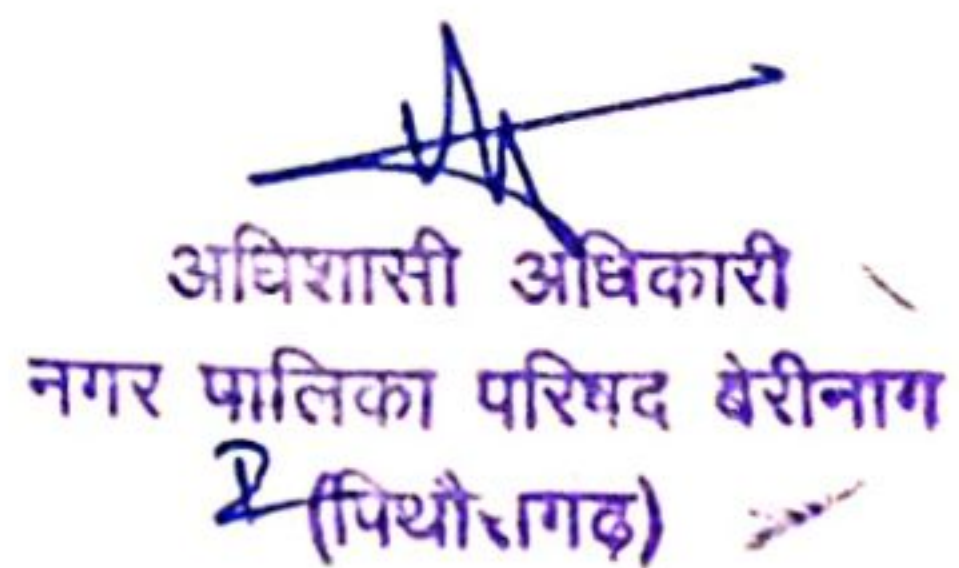 अधिशासी अधिकारी
नगर पालिका परिषद बेरीनाग
(पिथौरागढ़)